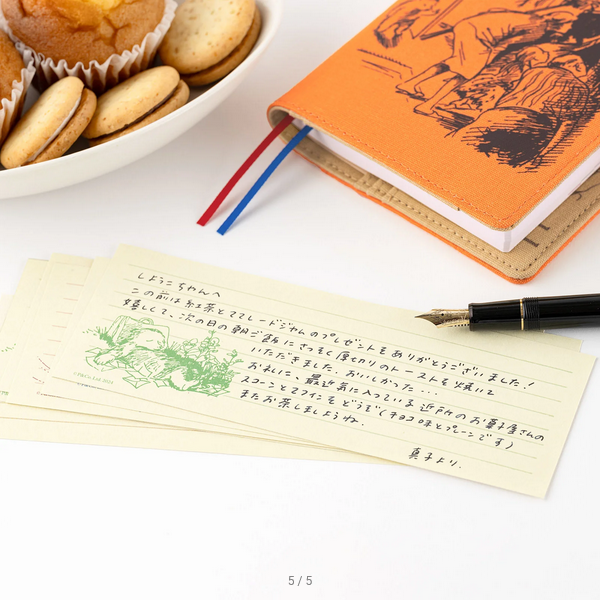 しょうこちゃんへ
この前は紅茶とマーマレードジャムのプレゼントをありがとうございました！
嬉しくて、次の日の朝ご飯にさっそく厚切りのトーストを焼いて
いただきました。おいしかった…
お礼に、最近気に入っている近所のお菓子屋さんの
スコーンとマフィンをどうぞ(チョコ味とプレーンです)
またお茶しましょうね。
真子より.
5 / 5